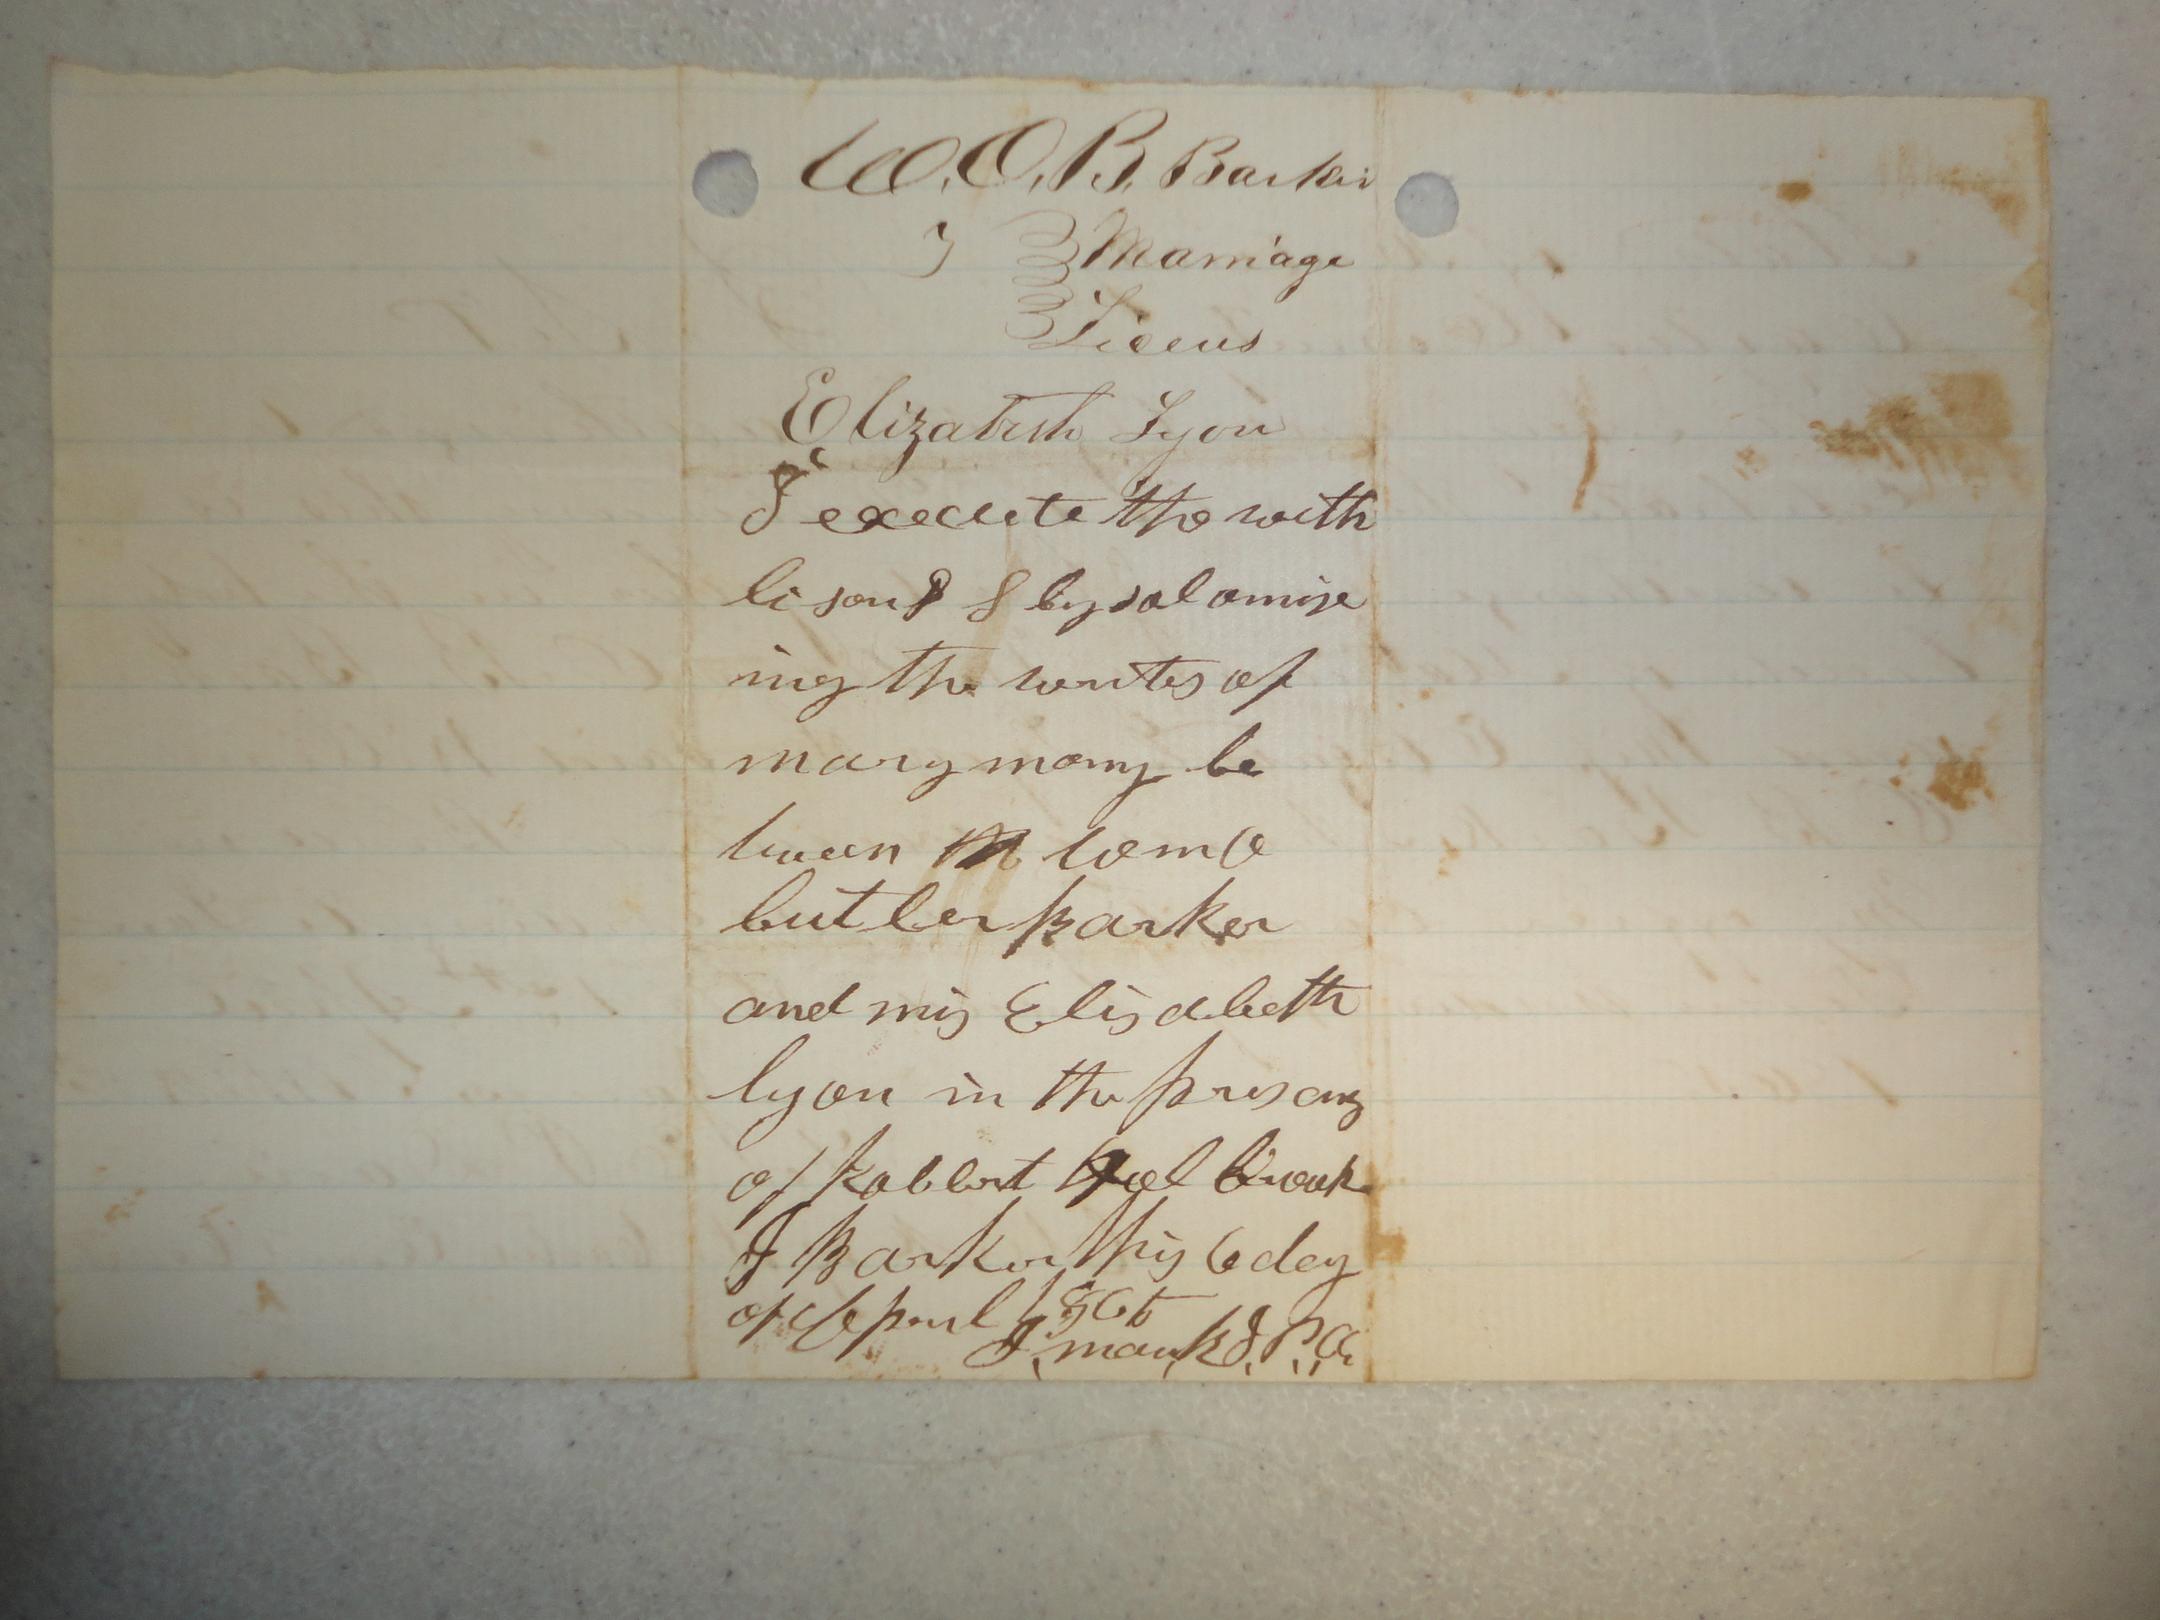 W. O. B. Barker
& Marriage
Licens
Elizabeth Lyon
I execute the with
lisons by solomise
ing the writes of
marymony be
tween Wm O
butler Barker
and mis Elisabeth
lyon in the presany
of Robbert Hol brook
J Barker this 6 day
of Aprul 1866
J. mauk J. P.